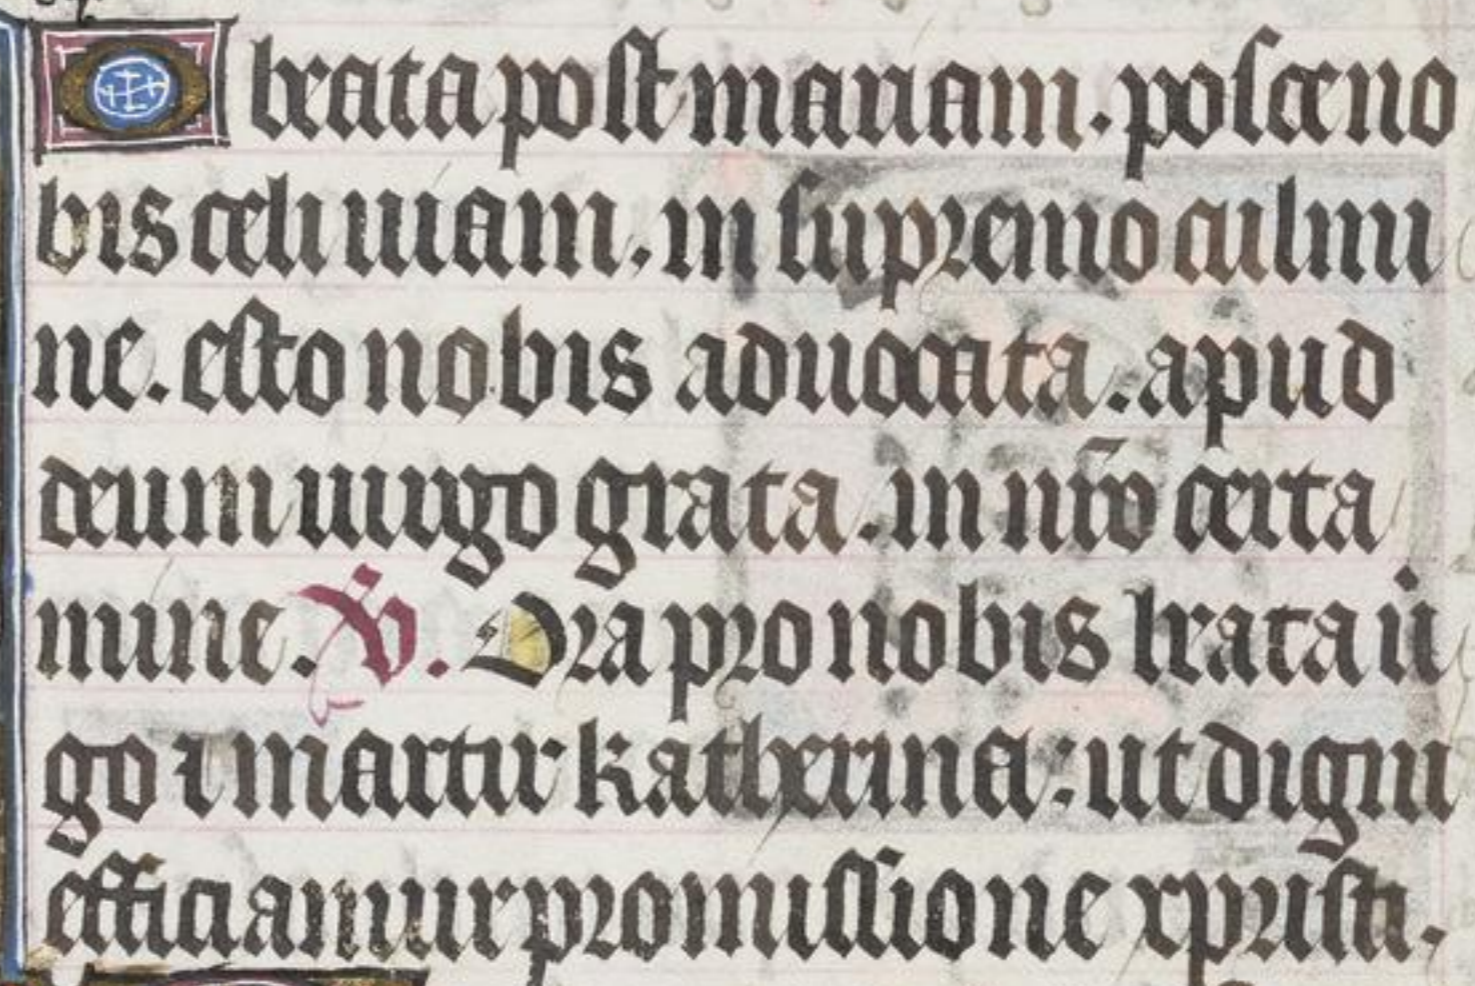 O beata post mariam. posce no
bis celi uiam. in supremo culmi
ne. esto nobis aduocata. apud
deum uirgo grata. in nr̄o certa
mine. ℣. Ora pro nobis beata uͥ
go ⁊ martir katherina: ut digni
efficiamur promissione xpristi.